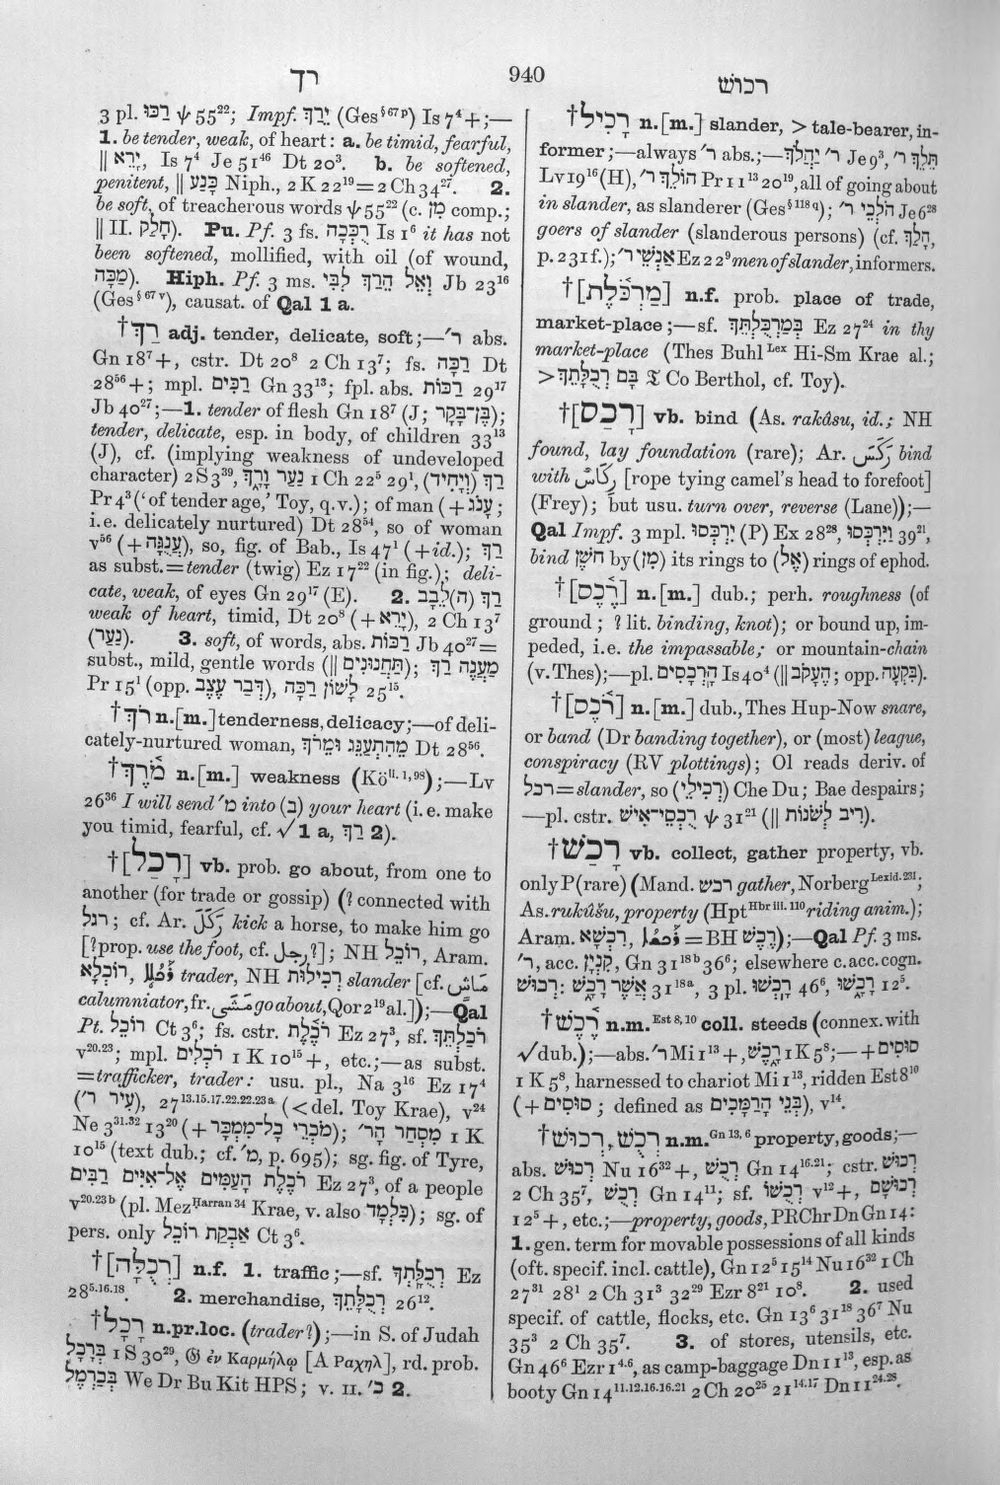 רך
940
רכושׁ
3 pl. רַכּוּ ψ 55²²; Impf. יֵרַךְ (Ges§⁶⁷ᵖ) Is 7⁴+;—
1. be tender, weak, of heart: a. be timid, fearful,
‖ יָרֵא, Is 7⁴ Je 51⁴⁶ Dt 20³. b. be softened,
penitent, ‖ כָּנַע Niph., 2 K 22¹⁹=2 Ch 34²⁷. 2.
be soft, of treacherous words ψ 55²² (c. מִן comp.;
‖ II. חָלַק). Pu. Pf. 3 fs. רֻכְּכָה Is 1⁶ it has not
been softened, mollified, with oil (of wound,
מַכָּה). Hiph. Pf. 3 ms. וְאֵל הֵרַךְ לִבִּי Jb 23¹⁶
(Ges§⁶⁷ᵛ), causat. of Qal 1 a.
†רַךְ adj. tender, delicate, soft;—ר׳ abs.
Gn 18⁷+, cstr. Dt 20⁸ 2 Ch 13⁷; fs. רַכָּה Dt
28⁵⁶+; mpl. רַכִּים Gn 33¹³; fpl. abs. רַכּוֹת 29¹⁷
Jb 40²⁷;—1. tender of flesh Gn 18⁷ (J; בֶּן־בָּקָר);
tender, delicate, esp. in body, of children 33¹³
(J), cf. (implying weakness of undeveloped
character) 2 S 3³⁹, נַעַר וָרָךְ 1 Ch 22⁵ 29¹, (וְיָחִיד) רַךְ
Pr 4³ (‘of tender age,’ Toy, q.v.); of man (+עָנֹג;
i.e. delicately nurtured) Dt 28⁵⁴, so of woman
v⁵⁶ (+עֲנֻגָּה), so, fig. of Bab., Is 47¹ (+id.); רַךְ
as subst.=tender (twig) Ez 17²² (in fig.); deli-
cate, weak, of eyes Gn 29¹⁷ (E). 2. רַךְ (הַ)לֵּבָב
weak of heart, timid, Dt 20⁸ (+יָרֵא), 2 Ch 13⁷
(נַעַר). 3. soft, of words, abs. רַכּוֹת Jb 40²⁷=
subst., mild, gentle words (‖ תַּחֲנוּנִים); מַעֲנֶה רַךְ
Pr 15¹ (opp. דְּבַר עֶצֶב), לָשׁוֹן רַכָּה 25¹⁵.
†רֹךְ n.[m.] tenderness, delicacy;—of deli-
cately-nurtured woman, מֵהִתְעַנֵּג וּמֵרֹךְ Dt 28⁵⁶.
†מֹרֶךְ n.[m.] weakness (Köⁱⁱ·¹,⁹⁸);—Lv
26³⁶ I will send מ׳ into (בְּ) your heart (i.e. make
you timid, fearful, cf. √1 a, רַךְ 2).
†[רָכַל] vb. prob. go about, from one to
another (for trade or gossip) (? connected with
רגל; cf. Ar. رَكَلَ kick a horse, to make him go
[? prop. use the foot, cf. رجل?]; NH רוֹכֵל, Aram.
רוֹכְלָא, ܪܟܠܐ trader, NH רְכִילוּת slander [cf. مَاشٍ
calumniator, fr. مَشَى go about, Qor 2¹⁹ al.]);—Qal
Pt. רוֹכֵל Ct 3⁶; fs. cstr. רֹכֶלֶת Ez 27³, sf. רֹכַלְתֵּךְ
v²⁰·²³; mpl. רֹכְלִים 1 K 10¹⁵+, etc.;—as subst.
=trafficker, trader: usu. pl., Na 3¹⁶ Ez 17⁴
(עִיר ר׳), 27¹³·¹⁵·¹⁷·²²·²²·²³ᵃ (<del. Toy Krae), v²⁴
Ne 3³¹·³² 13²⁰ (+מֹכְרֵי כָל־מִמְכָּר); מִסְחַר הָר׳ 1 K
10¹⁵ (text dub.; cf. מ׳, p. 695); sg. fig. of Tyre,
רֹכֶלֶת הָעַמִּים אֶל־אִיִּים רַבִּים Ez 27³, of a people
v²⁰·²³ᵇ (pl. Mezᴴᵃʳʳᵃⁿ ³⁴ Krae, v. also כִּלְמַד); sg. of
pers. only אַבְקַת רוֹכֵל Ct 3⁶.
†[רְכֻלָּה] n.f. 1. traffic;—sf. רְכֻלָּתְךָ Ez
28⁵·¹⁶·¹⁸. 2. merchandise, רְכֻלָּתֵךְ 26¹².
†רָכָל n.pr.loc. (trader?);—in S. of Judah
בְּרָכָל 1 S 30²⁹, 𝔊 ἐν Καρμήλῳ [A Ραχηλ], rd. prob.
בְּכַרְמֶל We Dr Bu Kit HPS; v. II. כ׳ 2.
†רָכִיל n.[m.] slander, > tale-bearer, in-
former;—always ר׳ abs.;—יַהֲלֹךְ ר׳ Je 9³, תֵּלֵךְ ר׳
Lv 19¹⁶ (H), הוֹלֵךְ ר׳ Pr 11¹³ 20¹⁹, all of going about
in slander, as slanderer (Ges§¹¹⁸ᑫ); הֹלְכֵי ר׳ Je 6²⁸
goers of slander (slanderous persons) (cf. הָלַךְ,
p. 231 f.); אַנְשֵׁי ר׳ Ez 22⁹ men of slander, informers.
†[מַרְכֹּלֶת] n.f. prob. place of trade,
market-place;—sf. בְּמַרְכֻלְתֵּךְ Ez 27²⁴ in thy
market-place (Thes Buhlᴸᵉˣ Hi-Sm Krae al.;
>בָּם רְכֻלָּתֵךְ 𝔗 Co Berthol, cf. Toy).
†[רָכַס] vb. bind (As. rakâsu, id.; NH
found, lay foundation (rare); Ar. رَكَسَ bind
with رِكَاس [rope tying camel's head to forefoot]
(Frey); but usu. turn over, reverse (Lane));—
Qal Impf. 3 mpl. יִרְכְּסוּ (P) Ex 28²⁸, וַיִּרְכְּסוּ 39²¹,
bind חֹשֶׁן by (מִן) its rings to (אֶל) rings of ephod.
†[רֶכֶס] n.[m.] dub.; perh. roughness (of
ground; ? lit. binding, knot); or bound up, im-
peded, i.e. the impassable; or mountain-chain
(v. Thes);—pl. הָרְכָסִים Is 40⁴ (‖ הֶעָקֹב; opp. בִּקְעָה).
†[רֹכֶס] n.[m.] dub., Thes Hup-Now snare,
or band (Dr banding together), or (most) league,
conspiracy (RV plottings); Ol reads deriv. of
רכל=slander, so (רְכִילֵי) Che Du; Bae despairs;
—pl. cstr. רֻכְסֵי־אִישׁ ψ 31²¹ (‖ רִיב לְשֹׁנוֹת).
†רָכַשׁ vb. collect, gather property, vb.
only P (rare) (Mand. רכש gather, Norbergᴸᵉˣⁱᵈ·²³¹;
As. rukûšu, property (Hptᴴᵇʳ ⁱⁱⁱ·¹¹⁰ riding anim.);
Aram. רִכְשָׁא, ܪܟܫܐ=BH רֶכֶשׁ);—Qal Pf. 3 ms.
ר׳, acc. קִנְיָן, Gn 31¹⁸ᵇ 36⁶; elsewhere c. acc. cogn.
רְכוּשׁ: אֲשֶׁר רָכָשׁ 31¹⁸ᵃ, 3 pl. רָכְשׁוּ 46⁶, רָכָשׁוּ 12⁵.
†רֶכֶשׁ n.m.ᴱˢᵗ ⁸,¹⁰ coll. steeds (connex. with
√dub.);—abs. ר׳ Mi 1¹³+, רָכֶשׁ 1 K 5⁸;—+סוּסִים
1 K 5⁸, harnessed to chariot Mi 1¹³, ridden Est 8¹⁰
(+סוּסִים; defined as בְּנֵי הָרַמָּכִים), v¹⁴.
†רְכוּשׁ, רְכֻשׁ n.m.ᴳⁿ ¹³,⁶ property, goods;—
abs. רְכוּשׁ Nu 16³²+, רְכֻשׁ Gn 14¹⁶·²¹; cstr. רְכוּשׁ
2 Ch 35⁷, רְכֻשׁ Gn 14¹¹; sf. רְכֻשׁוֹ v¹²+, רְכוּשָׁם
12⁵+, etc.;—property, goods, PRChrDn Gn 14:
1. gen. term for movable possessions of all kinds
(oft. specif. incl. cattle), Gn 12⁵ 15¹⁴ Nu 16³² 1 Ch
27³¹ 28¹ 2 Ch 31³ 32²⁹ Ezr 8²¹ 10⁸. 2. used
specif. of cattle, flocks, etc. Gn 13⁶ 31¹⁸ 36⁷ Nu
35³ 2 Ch 35⁷. 3. of stores, utensils, etc.
Gn 46⁶ Ezr 1⁴·⁶, as camp-baggage Dn 11¹³, esp. as
booty Gn 14¹¹·¹²·¹⁶·¹⁶·²¹ 2 Ch 20²⁵ 21¹⁴·¹⁷ Dn 11²⁴·²⁸.